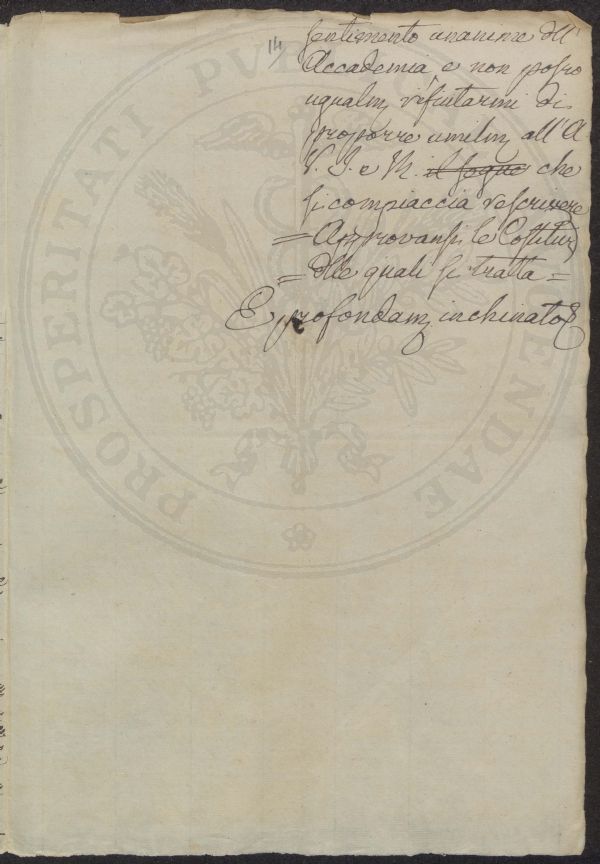 14
sentimento unanime dll'
Accademia, e non posso
ugualm rifiutarmi di
proporre umilm all'A
V. I. e R. il segue che
si compiaccia rescrivere
= Approvansi le Costituz
= dlle quali si tratta =
E profondam inchinato
PROSPERITATI PUBLICAE AUGENDAE